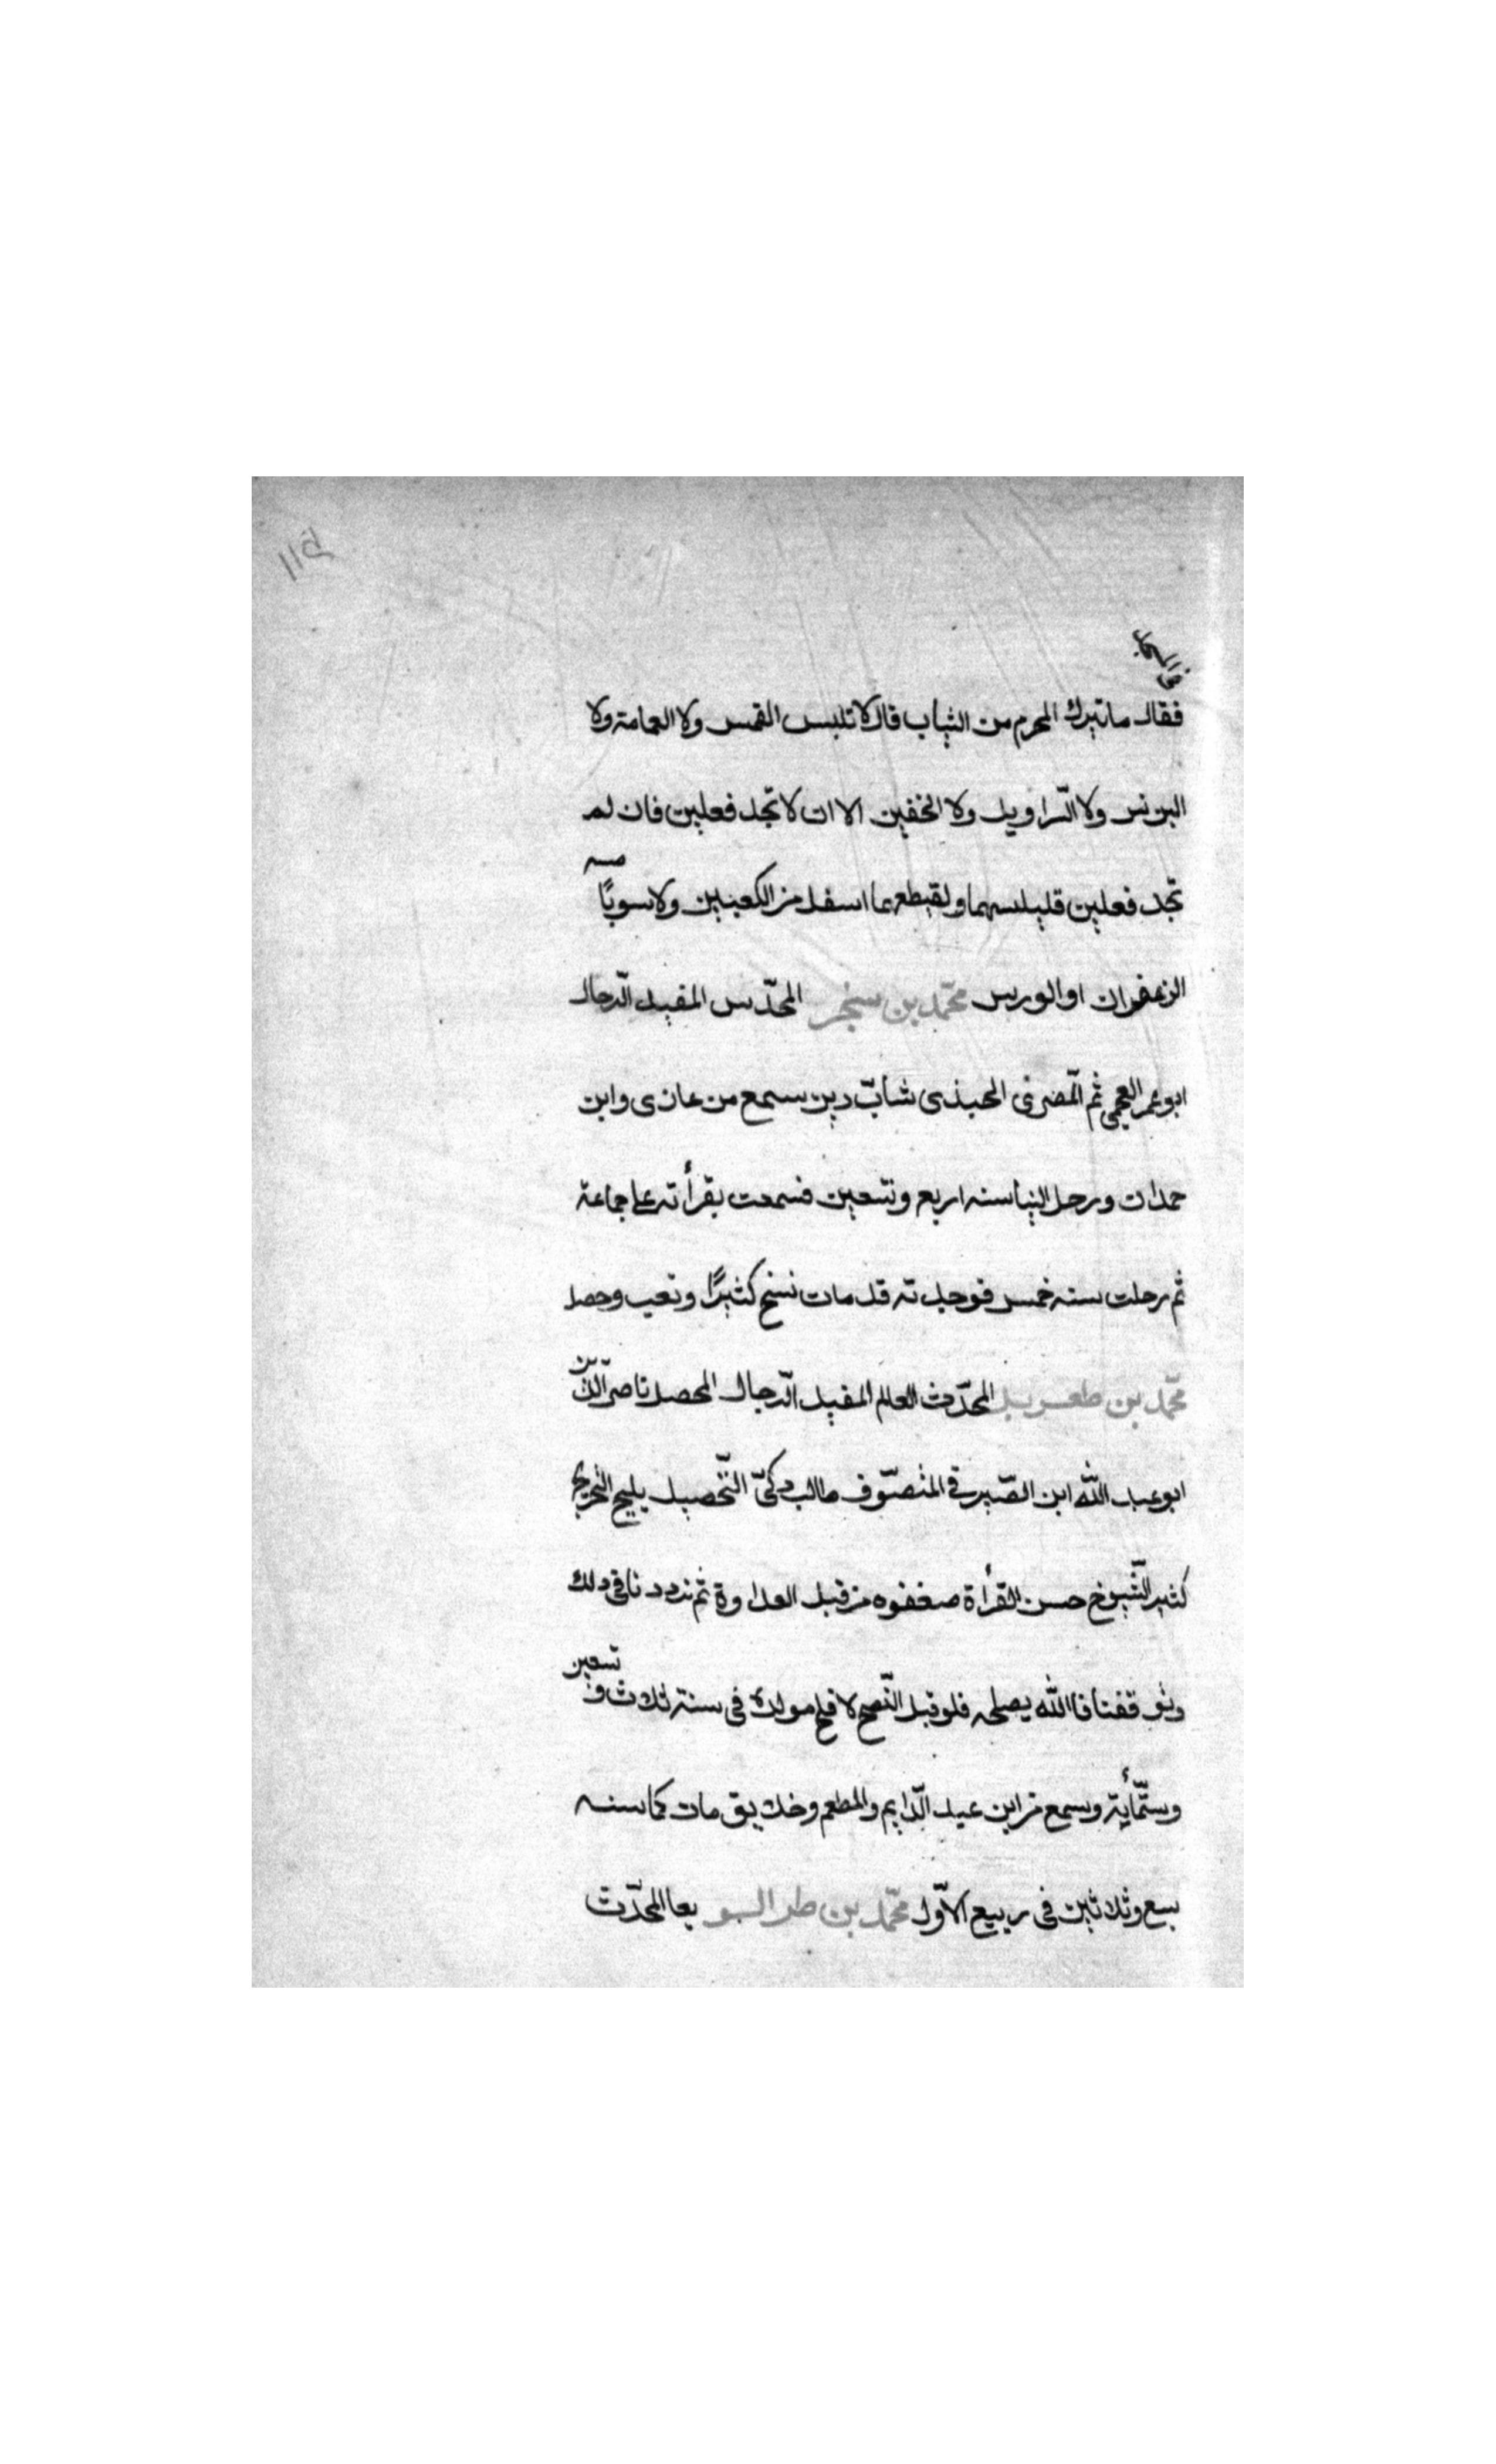 فقال ماتيرك المحرم من الثياب قال لا تلبس القمس ولا العمامة ولا
البرنس ولا السّراويل ولا الخفين الا ان لا تجد فعلين فان لم
تجد فعلين قليلسهما ولقيطعهما اسفل من الكعبين ولا سوبًا مسه
الزعفران او الوريس محمّد بن سنجر المحدّس المفيد الرّحال
ابو عمر العجمى ثم المّضرى الحبذى شابّ دين سمع من غازى وابن
حمدان ورحل الينا سنه اربع وتسعين فسمعت بقرأته على جماعة
ثم رحلت سنه خمس فوجدته قد مات نسخ كثيرًا وتعب وحصل
محمّد بن طغريل المحدّث العالم المفيد الرّحال المحصل ناصر الدّين
ابو عبد الله ابن الصّيرفى المتصوّف طالب ذكىّ التّحصيل يليح التخريج
كثير الشّيوخ حسن القرأة صغفوه من قبل العداوة ثم نردد نا فى ذلك
وتوقفنا فاالله يصلحه فلو قبل النّصح لا فلح مولده فى سنة ثلاث و تسعين
وستّمأية وسمع من ابن عبد الدّايم والمطعم وخلايق مات كماسنه
سبع وثلاثين فى ربيع الاوّل محمّد بن طرالبو بعا المحدّث